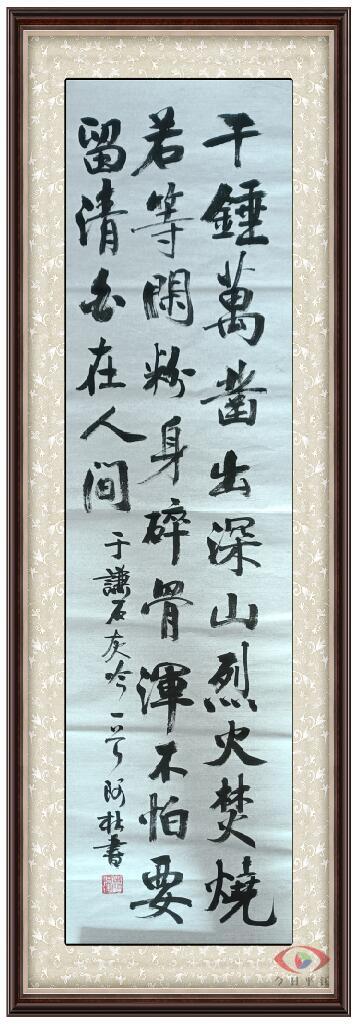 千錘萬凿出深山烈火焚燒
若等閑粉身碎骨渾不怕要
留清白在人间
于謙石灰吟一首阿杜書